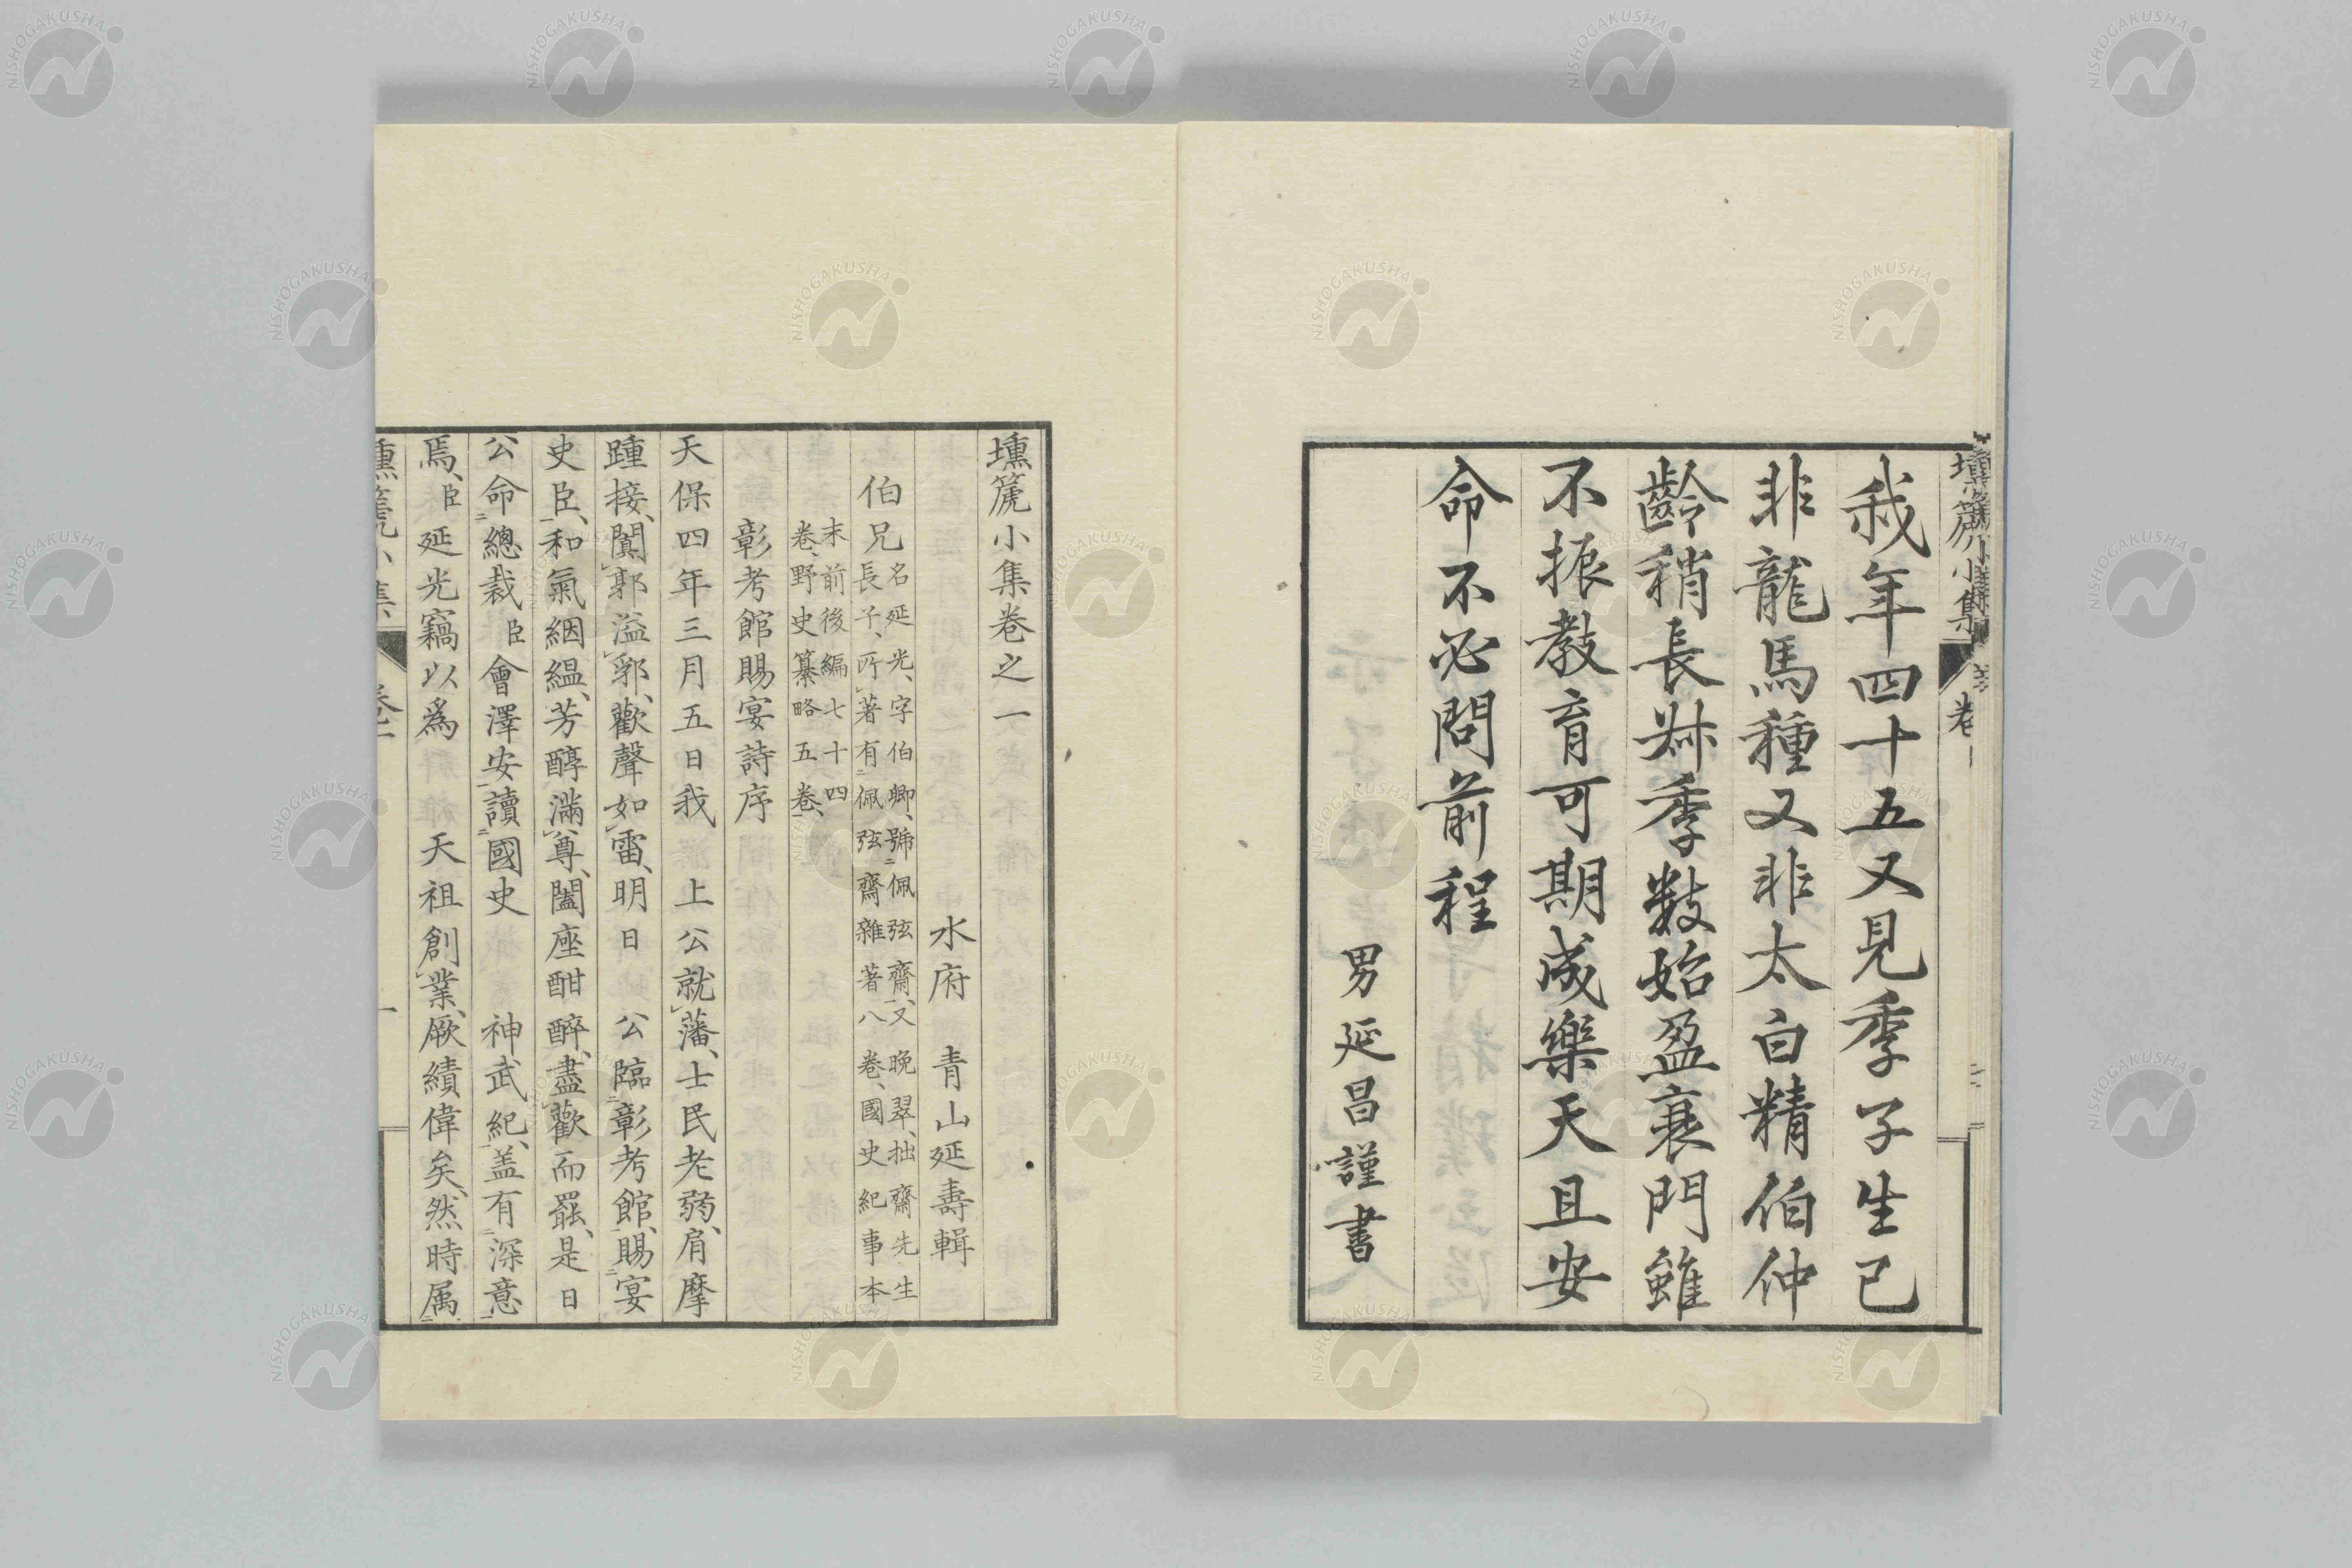 我年四十五又見季子生已
非龍馬種又非太白精伯仲
齡稍長叔季數始盈衰門雖
不振教育可期成樂天且安
命不必問前程
男延昌謹書
壎篪小集卷之一
水府 青山延壽輯
伯兄名延光、字伯卿、號佩弦齋、又晚翠、拙齋先生
長子、所著有佩弦齋雜著八卷、國史紀事本
末前後編七十四
卷、野史纂略五卷、
彰考館賜宴詩序
天保四年三月五日我 上公就藩、士民老弱、肩摩
踵接、闐郭溢郛、歡聲如雷、明日 公臨彰考館、賜宴
史臣、和氣絪縕、芳醇滿尊、闔座酣醉、盡歡而罷、是日
公命總裁臣會澤安讀國史 神武紀、盖有深意
焉、臣延光竊以爲 天祖創業、厥績偉矣、然時属
壎篪小集 卷一 一
NISHOGAKUSHA